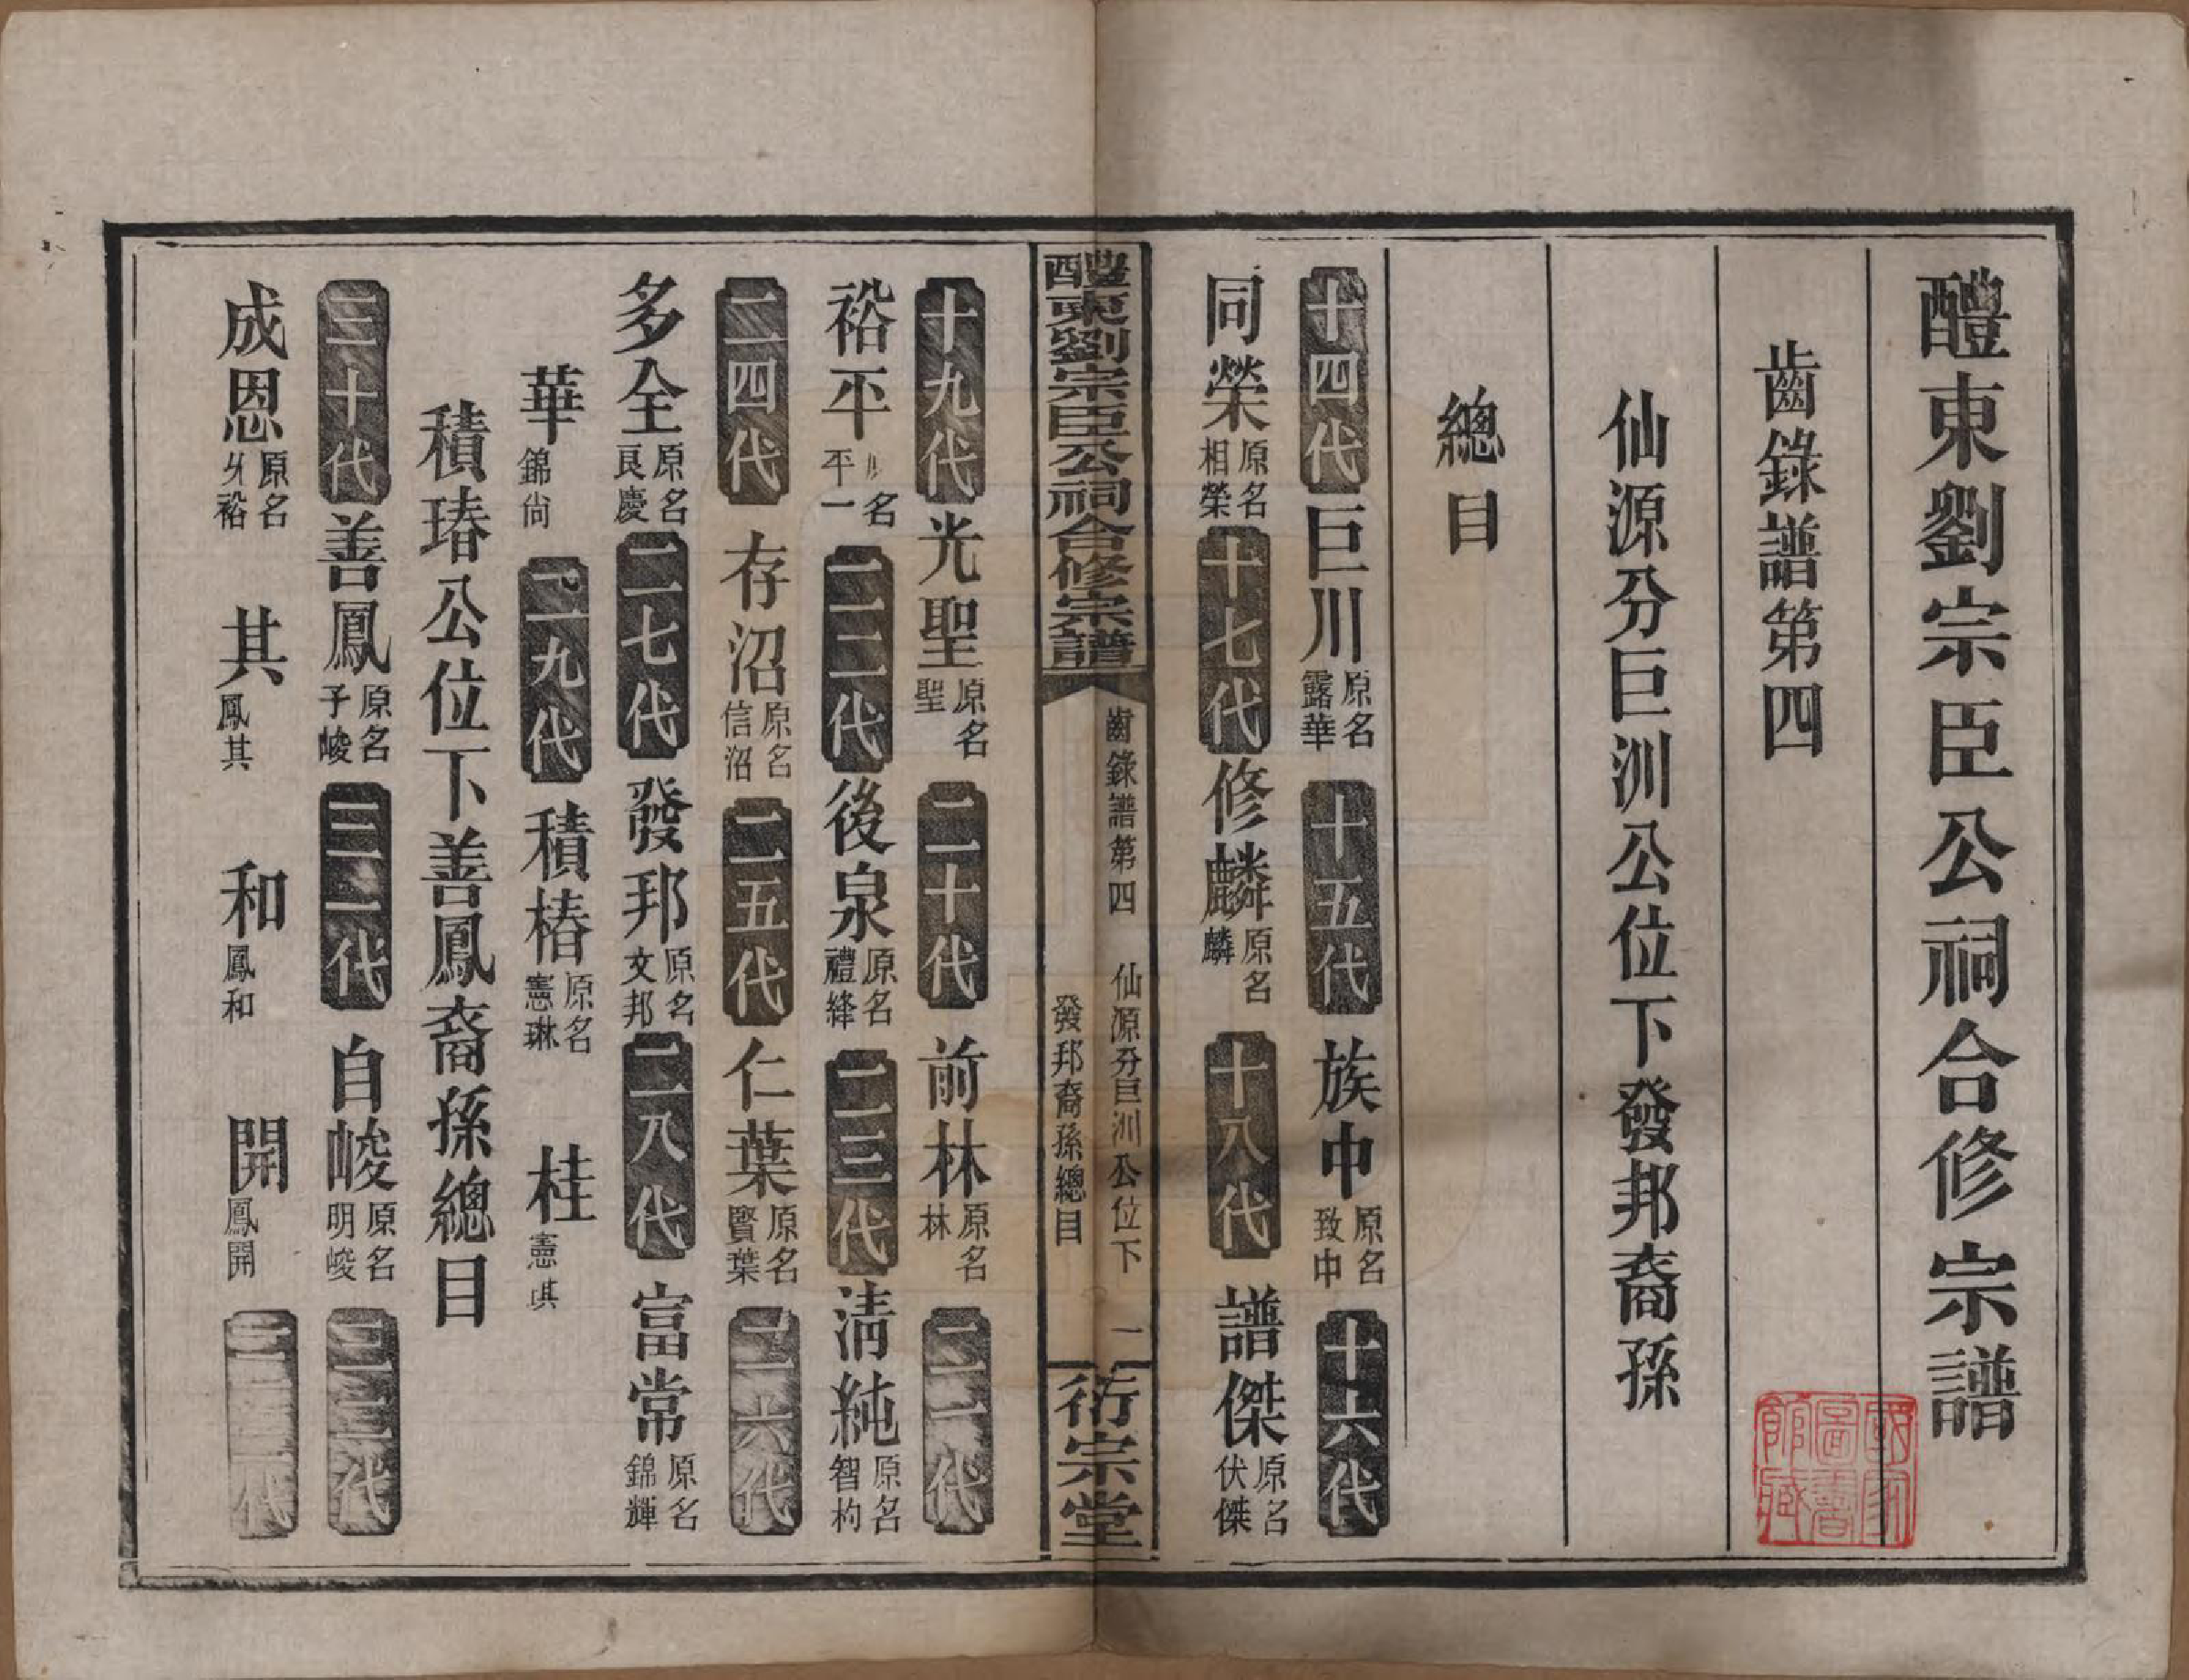 醴東劉宗臣公祠合修宗譜
齒錄譜第四
仙源分巨洲公位下發邦裔孫
總目
十四代 巨川 原名露華 十五代 族中 原名致中 十六代
同榮 原名相榮 十七代 修麟 原名麟 十八代 譜傑 原名伏傑
醴東劉宗臣公祠合修宗譜 齒錄譜第四 仙源分巨洲公位下發邦裔孫總目 一 衍宗堂
十九代 光聖 原名聖 二十代 前林 原名林 二一代
裕平 名平一 二二代 後泉 原名禮絳 二三代 清純 原名智枸
二四代 存沼 原名信沼 二五代 仁葉 原名賢葉 二六代
多全 原名良慶 二七代 發邦 原名文邦 二八代 富常 原名錦輝
華 錦尙 二九代 積椿 原名憲琳 桂 憲
積瑃公位下善鳳裔孫總目
三十代 善鳳 原名子峻 三一代 自峻 原名明峻 三二代
成恩 原名裕 其 鳳其 和 鳳和 開 鳳開 三三代
國家圖書館藏